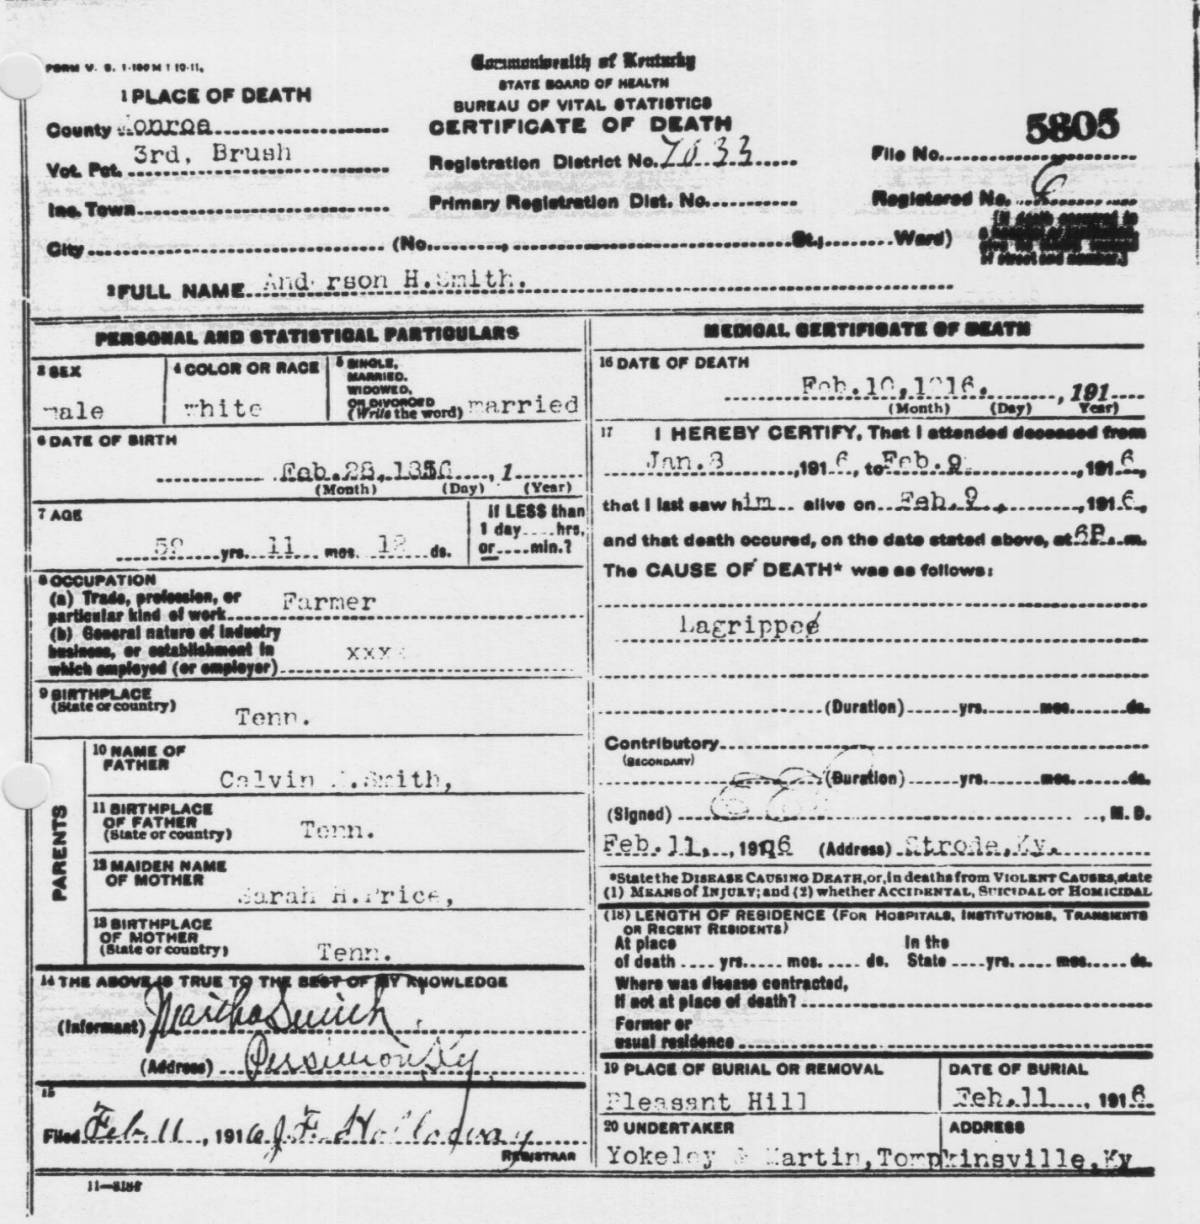 FORM V. S. 1-150M 1 10-11,
Commonwealth of Kentucky
STATE BOARD OF HEALTH
BUREAU OF VITAL STATISTICS
CERTIFICATE OF DEATH
1 PLACE OF DEATH
County Monroe
Vot. Pct. 3rd, Brush
Inc. Town
City (No. , St.; Ward)
Registration District No. 7033
Primary Registration Dist. No.
File No. 5805
Registered No. 6
(If death occurred in
a hospital or institution,
give its NAME instead
of street and number.)
2 FULL NAME And rson H.Smith.
PERSONAL AND STATISTICAL PARTICULARS
3 SEX
male
4 COLOR OR RACE
white
5 SINGLE,
MARRIED,
WIDOWED,
OR DIVORCED
(Write the word) married
6 DATE OF BIRTH
Feb.28,1856 , 1
(Month) (Day) (Year)
7 AGE
59 yrs. 11 mos. 12 ds.
If LESS than
1 day hrs.
or min.?
8 OCCUPATION
(a) Trade, profession, or
particular kind of work Farmer
(b) General nature of industry
business, or establishment in
which employed (or employer) xxxx
9 BIRTHPLACE
(State or country)
Tenn.
PARENTS
10 NAME OF
FATHER
Calvin .Smith,
11 BIRTHPLACE
OF FATHER
(State or country) Tenn.
12 MAIDEN NAME
OF MOTHER
Sarah H.Price,
13 BIRTHPLACE
OF MOTHER
(State or country) Tenn.
14 THE ABOVE IS TRUE TO THE BEST OF MY KNOWLEDGE
(Informant) Martha Smith
(Address) Persimmon Ky
15
Filed Feb. 11 , 1916 J. F. Holloway
REGISTRAR
11—3184
MEDICAL CERTIFICATE OF DEATH
16 DATE OF DEATH
Feb.10,1916. , 191
(Month) (Day) Year)
17 I HEREBY CERTIFY, That I attended deceased from
Jan.8 , 1916, to Feb.9 , 1916,
that I last saw him alive on Feb.9. , 1916,
and that death occured, on the date stated above, at 6P. m.
The CAUSE OF DEATH* was as follows:
Lagrippe
(Duration) yrs. mos. ds.
Contributory
(SECONDARY)
(Duration) yrs. mos. ds.
(Signed) , M. D.
Feb.11, , 1916 (Address) Strode,Ky.
*State the DISEASE CAUSING DEATH, or, in deaths from VIOLENT CAUSES, state
(1) MEANS of INJURY; and (2) whether ACCIDENTAL, SUICIDAL or HOMICIDAL
(18) LENGTH OF RESIDENCE (FOR HOSPITALS, INSTITUTIONS, TRANSIENTS
OR RECENT RESIDENTS)
At place In the
of death yrs. mos. ds. State yrs. mos. ds.
Where was disease contracted,
If not at place of death?
Former or
usual residence
19 PLACE OF BURIAL OR REMOVAL
Pleasant Hill
DATE OF BURIAL
Feb.11 , 1916
20 UNDERTAKER
ADDRESS
Yokeley & Martin,Tompkinsville,Ky